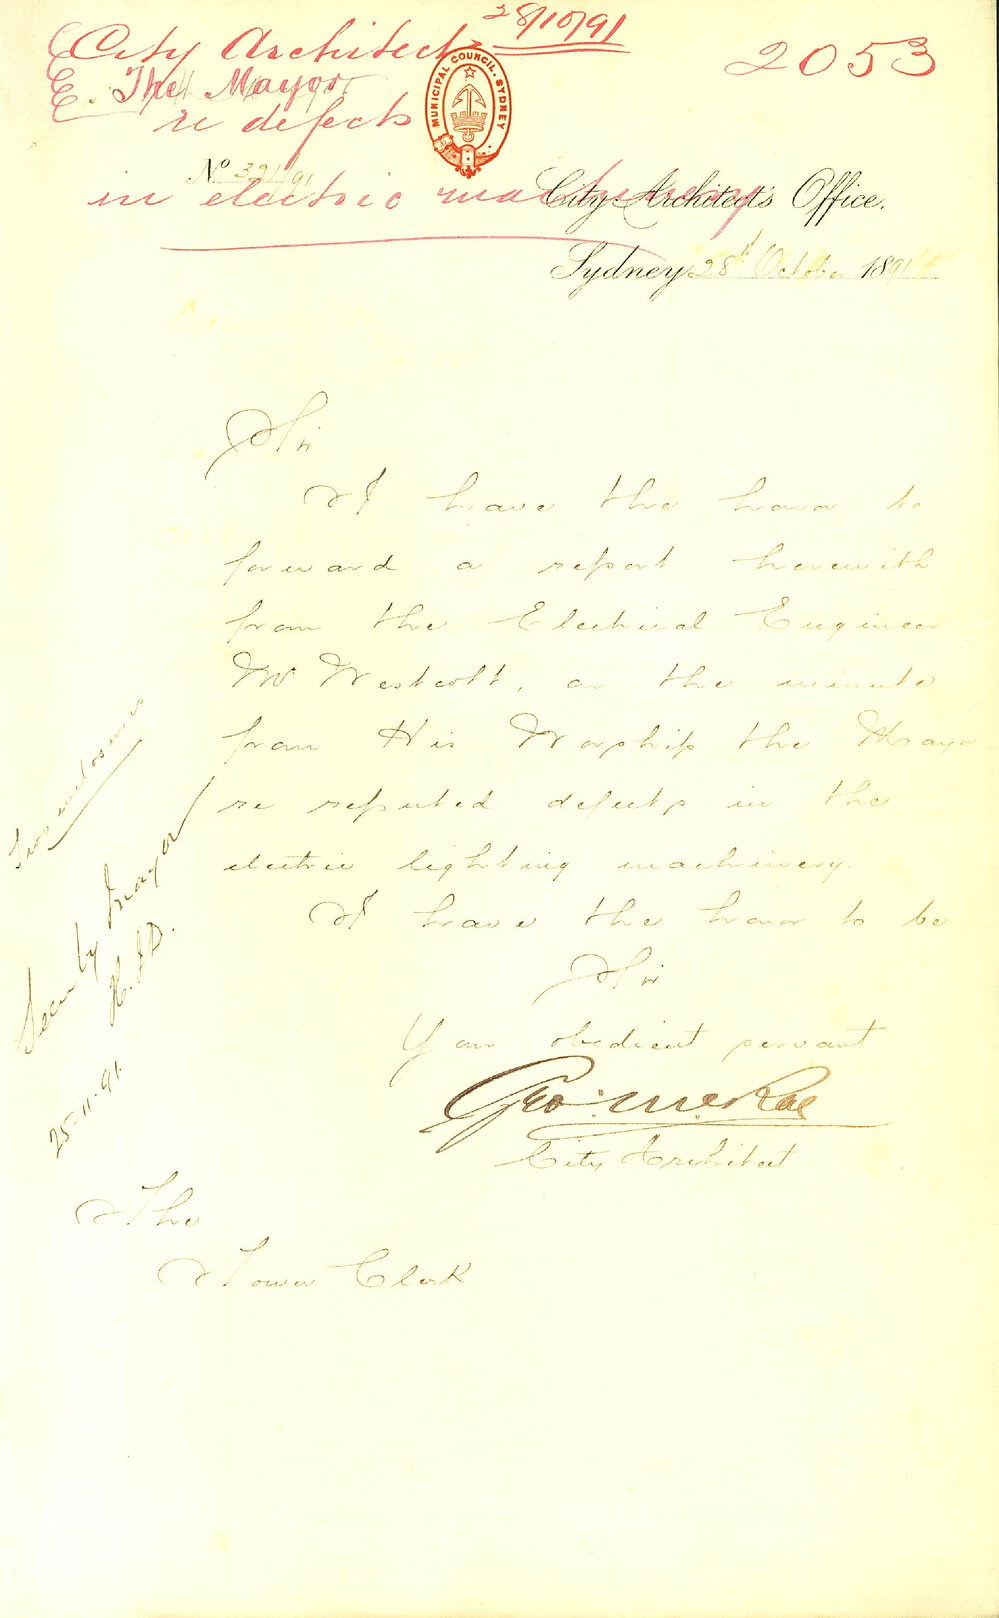 28/10/91
City Architect
2053
E. The Mayor
re defects
MUNICIPAL COUNCIL. SYDNEY
No 321/91
in electric machinery
City Architect's Office.
Sydney 28th October 1891
Sir
I have the honor to
forward a report herewith
from the Electrical Engineer
Mr Westcott, on the minute
from His Worship the Mayor
re reputed defects in the
electric lighting machinery.
I have the honor to be
Sir
Your obedient servant
Geo. McRae
City Architect
The
Town Clerk
Two enclosures
Seen by Mayor
25.11.91.